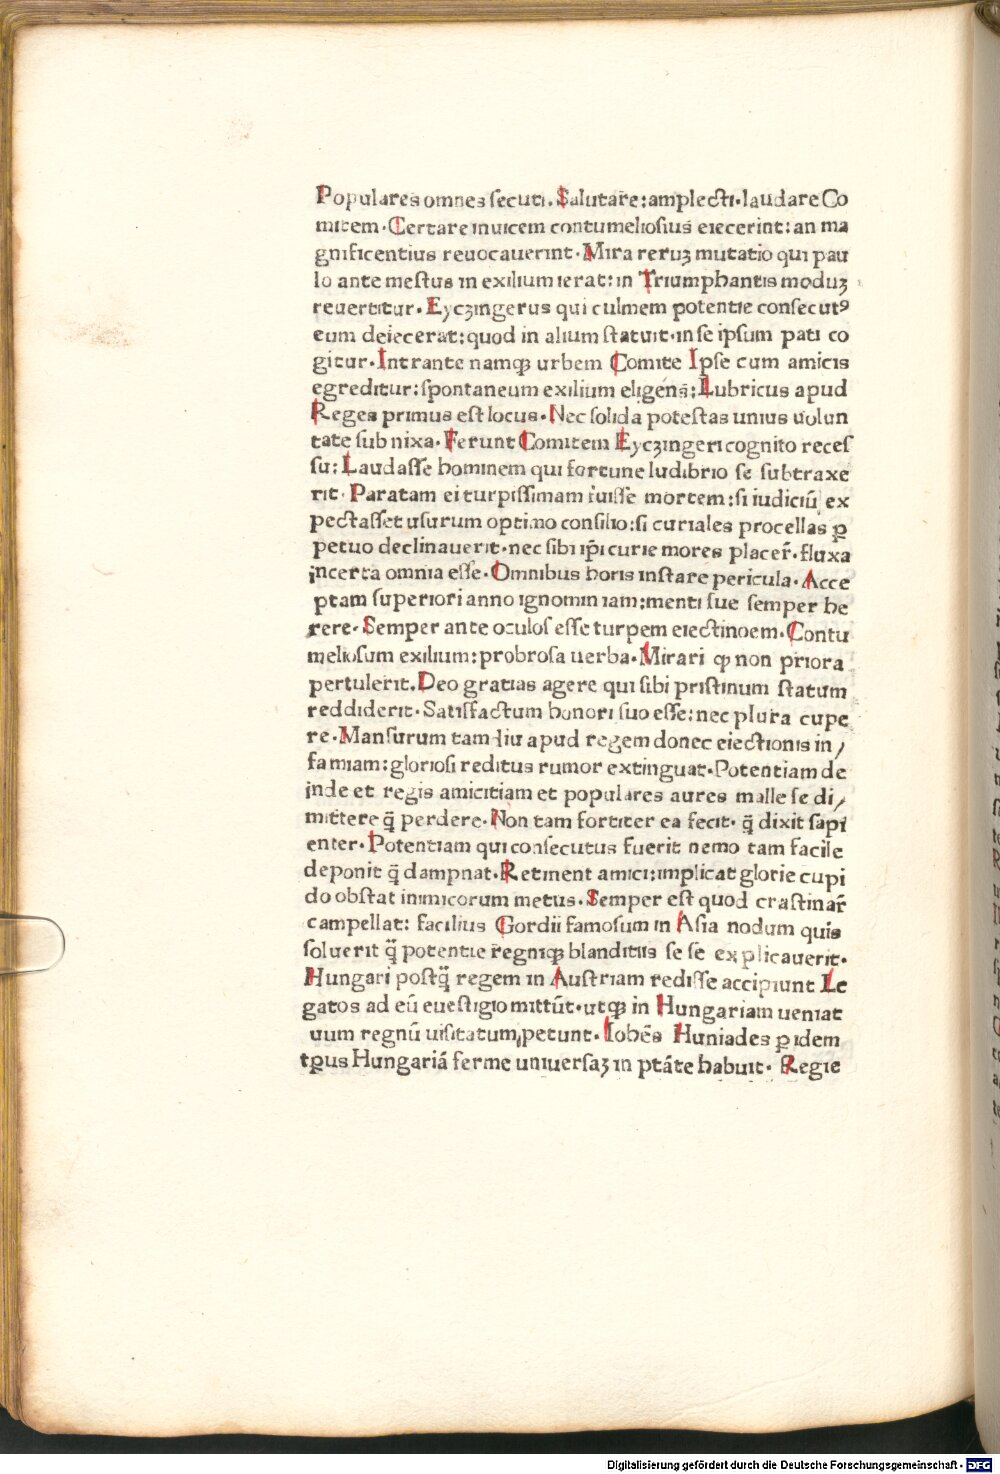 Populares omnes ſecuti. Salutare: amplecti· laudare Co
mitem· Certare inuicem contumelioſius eiecerint: an ma
gnificentius reuocauerint· Mira reruꝫ mutatio qui pau
lo ante meſtus in exilium ierat: in Triumphantis moduꝫ
reuertitur· Eyczingerus qui culmem potentie conſecutꝰ
eum deiecerat: quod in alium ſtatuit· in ſe ipſum pati co
gitur· Intrante namqꝫ urbem Comite Ipſe cum amicis
egreditur: ſpontaneum exilium eligens: Lubricus apud
Reges primus eſt locus· Nec ſolida poteſtas unius uolun
tate ſub nixa· Ferunt Comitem Eyczingeri cognito receſ
ſu: Laudaſſe hominem qui fortune ludibrio ſe ſubtraxe
rit· Paratam ei turpiſſimam fuiſſe mortem: ſi iudiciū ex
pectaſſet uſurum optimo conſilio: ſi curiales procellas ꝑ
petuo declinauerit· nec ſibi ip̄i curie mores placer̄· fluxa
incerta omnia eſſe· Omnibus horis inſtare pericula· Acce
ptam ſuperiori anno ignominiam: menti ſue ſemper he
rere· Semper ante oculoſ eſſe turpem eiectinoem· Contu
melioſum exilium: probroſa uerba· Mirari qꝫ non priora
pertulerit. Deo gratias agere qui ſibi priſtinum ſtatum
reddiderit· Satiſfactum honori ſuo eſſe: nec plura cupe
re· Manſurum tam diu apud regem donec eiectionis in/
famiam: glorioſi reditus rumor extinguat· Potentiam de
inde et regis amicitiam et populares aures malle ſe di/
mittere q̄ perdere· Non tam fortiter ea fecit· q̄ dixit ſapi
enter· Potentiam qui conſecutus fuerit nemo tam facile
deponit q̄ dampnat· Retinent amici: implicat glorie cupi
do obſtat inimicorum metus· Semper eſt quod craſtinar̄
campellat: facilius Gordii famoſum in Aſia nodum quis
ſoluerit q̄ potentie regniqꝫ blanditiis ſe ſe explicauerit·
Hungari poſtq̄ regem in Auſtriam rediſſe accipiunt Le
gatos ad eū eueſtigio mittūt· utqꝫ in Hungariam ueniat
uum regnū uiſitatum petunt· Iohēs Huniades ꝑ idem
tꝑus Hungariā ferme uniuerſaꝫ in ptāte habuit· Regie
Digitalisierung gefördert durch die Deutsche Forschungsgemeinschaft - DFG